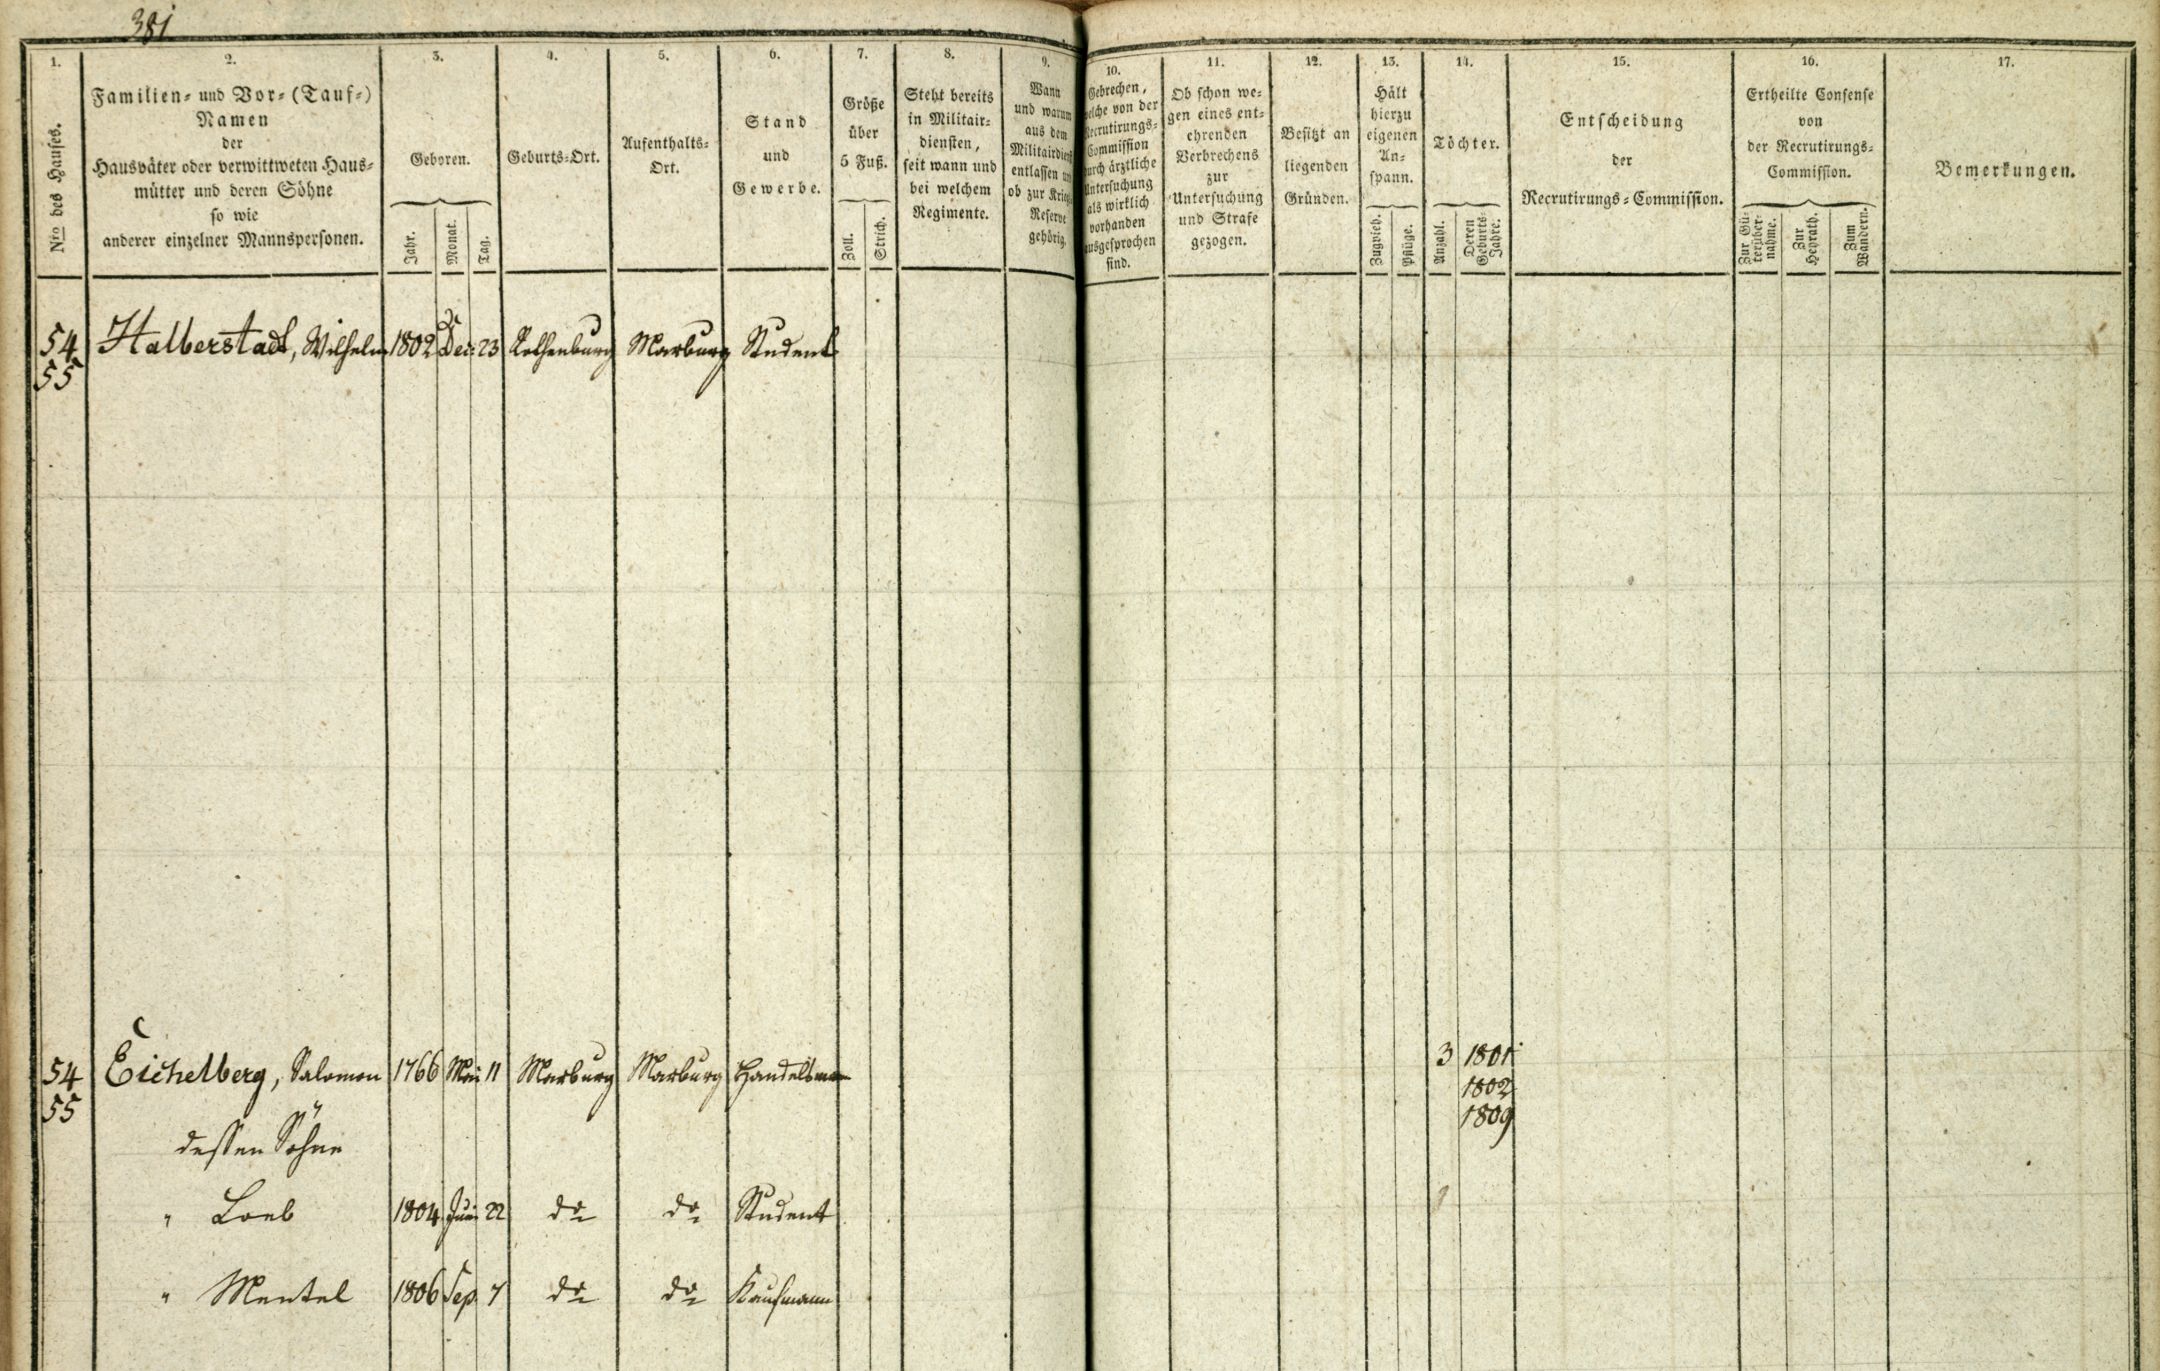 381
1.
Nro des Hauses.
2.
Familien- und Vor- (Tauf-)
Namen
der
Hausväter oder verwittweten Haus-
mütter und deren Söhne
so wie
anderer einzelner Mannspersonen.
3.
Geboren.
Jahr.
Monat.
Tag.
4.
Geburts-Ort.
5.
Aufenthalts-
Ort.
6.
Stand
und
Gewerbe.
7.
Größe
über
5 Fuß.
Zoll.
Strich.
8.
Steht bereits
in Militair-
diensten,
seit wann und
bei welchem
Regimente.
9.
Wann
und warum
aus dem
Militairdienst
entlassen und
ob zur Kriegs-
Reserve
gehörig.
10.
Gebrechen,
welche von der
Recrutirungs-
Commission
durch ärztliche
Untersuchung
als wirklich
vorhanden
ausgesprochen
sind.
11.
Ob schon we-
gen eines ent-
ehrenden
Verbrechens
zur
Untersuchung
und Strafe
gezogen.
12.
Besitzt an
liegenden
Gründen.
13.
Hält
hierzu
eigenen
An-
spann.
Zugvieh.
Pflüge.
14.
Töchter.
Anzahl.
Deren
Geburts-
Jahre.
15.
Entscheidung
der
Recrutirungs-Commission.
16.
Ertheilte Consense
von
der Recrutirungs-
Commission.
Zur Gü-
terüber-
nahme.
Zur
Heyrath.
Zum
Wandern.
17.
Bemerkungen.
54 Halberstadt, Wilhelm 1802 Dec. 23 Rothenburg Marburg Student
55
54 Eichelberg, Salomon 1766 Mai 11 Marburg Marburg Handelsmann 3 1801
55 1802
1809
dessen Söhne
" Loeb 1804 Juni 22 do do Student
" Mentel 1806 Sep. 7 do do Kaufmann